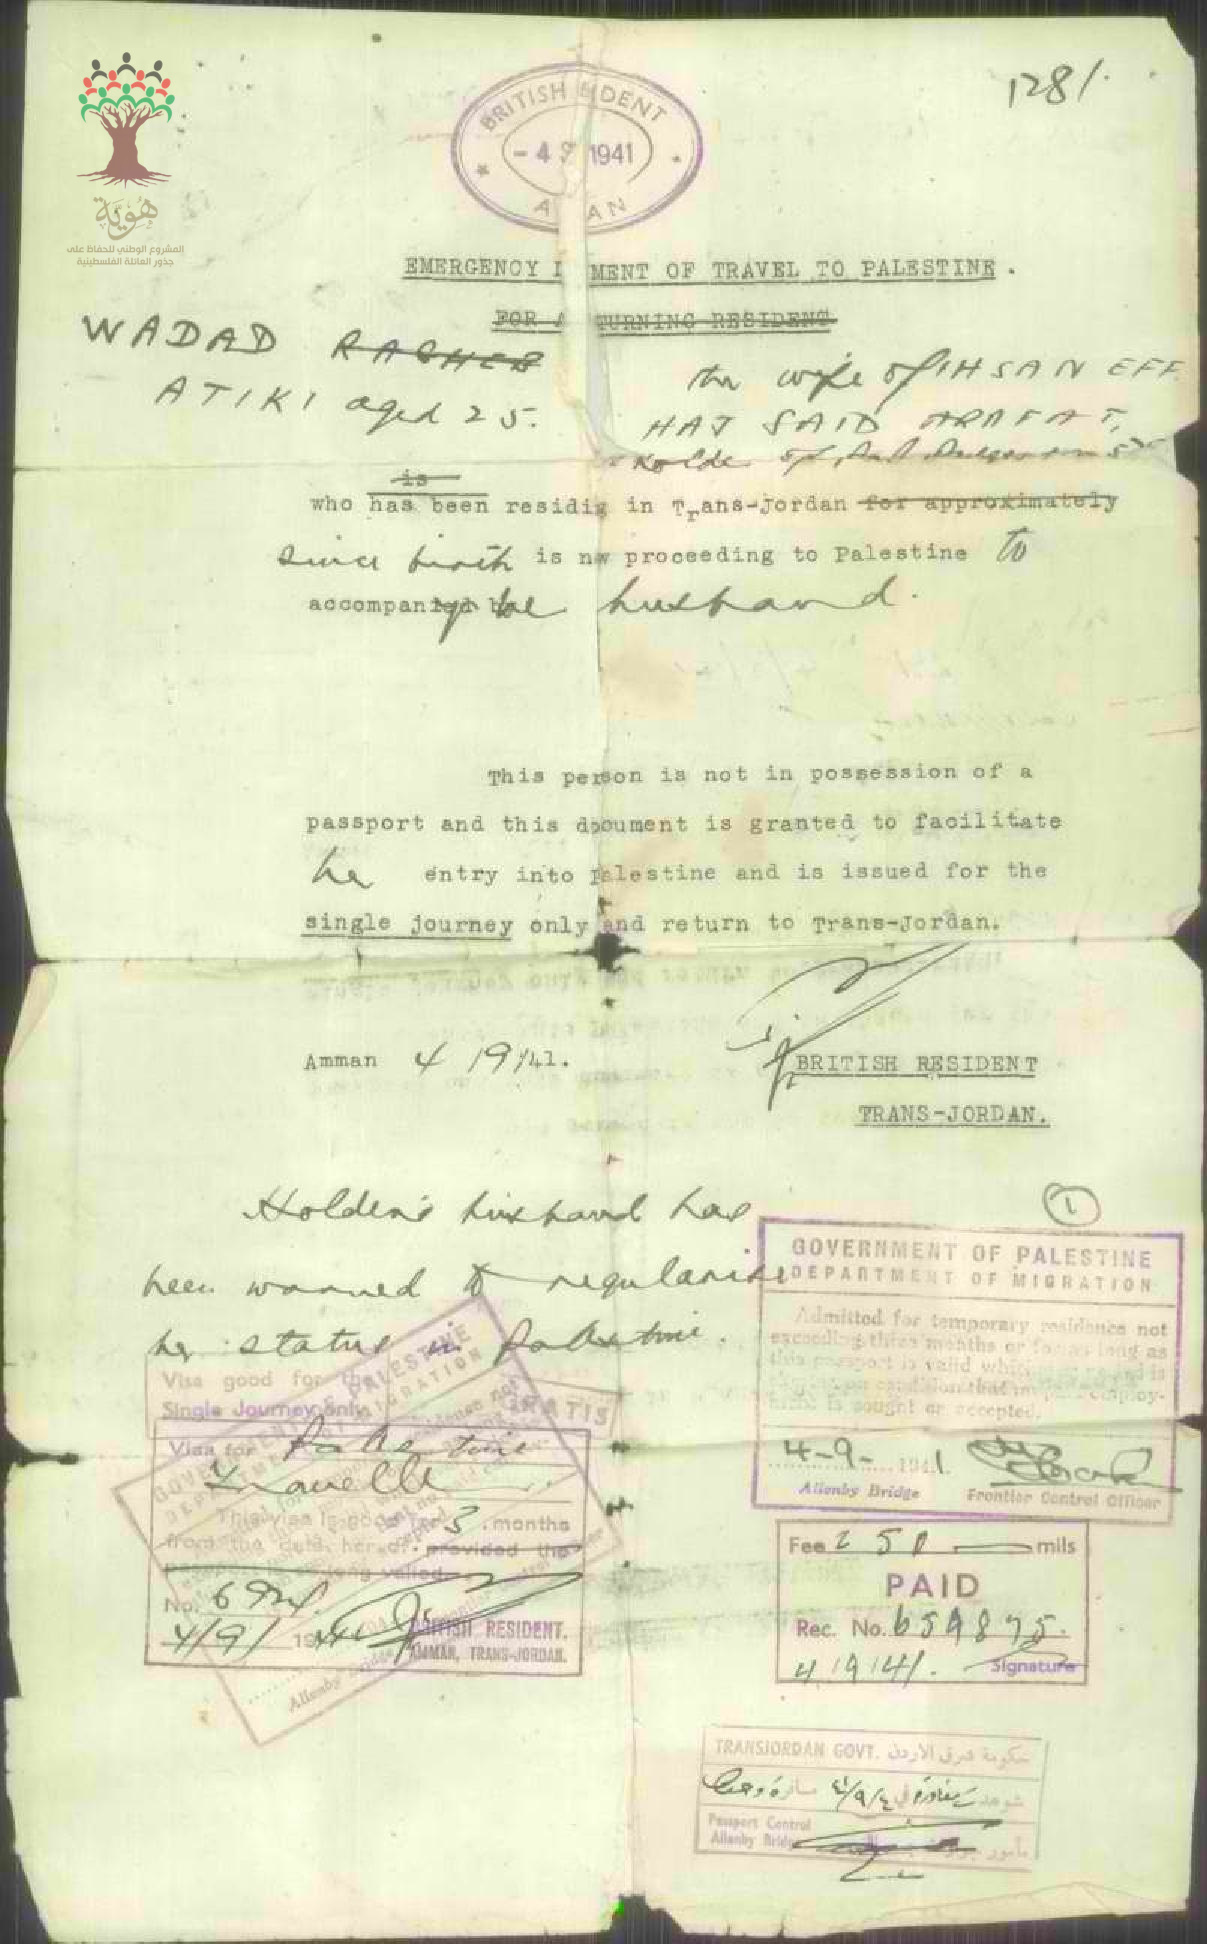 هوية
المشروع الوطني للحفاظ على
جذور العائلة الفلسطينية
128/.
BRITISH DENT
- 4 S 1941
A AN
EMERGENCY MENT OF TRAVEL TO PALESTINE.
FOR A TURNING RESIDENT
WADAD RAGHEB
ATIKI aged 25.
the wife of IHSAN EFF.
HAJ SAID ARAFAT,
holder of
is
who has been residig in Trans-Jordan for approximately
since birth is nw proceeding to Palestine to
accompany her husband.
This person is not in possession of a
passport and this document is granted to facilitate
her entry into Palestine and is issued for the
single journey only and return to Trans-Jordan.
Amman 4/9/41.
BRITISH RESIDENT
TRANS-JORDAN.
Holder's husband has
been warned to regularise
her status in Palestine.
1
GOVERNMENT OF PALESTINE
DEPARTMENT OF MIGRATION
Admitted for temporary residence not
exceeding three months or for as long as
this passport is valid whichever period is
condition that employ-
ment is sought or accepted.
4-9- 1941.
Allenby Bridge Frontier Control Officer
Visa good for
Single Journey only
GRATIS
Visa for Palestine
Travelling
This visa is good for 3 months
from the date hereof provided the
passport is so long valid
No. 692
4/9/ 1941
BRITISH RESIDENT.
AMMAN, TRANS-JORDAN.
GOVERNMENT OF PALESTINE
DEPARTMENT OF MIGRATION
Allenby Bridge
Fee 250 mils
PAID
Rec. No. 659875.
4/9/41. Signature
TRANSJORDAN GOVT. حكومة شرق الاردن
شوهد في ٤/٩/٤١
Passport Control
Allenby Bridge
مأمور